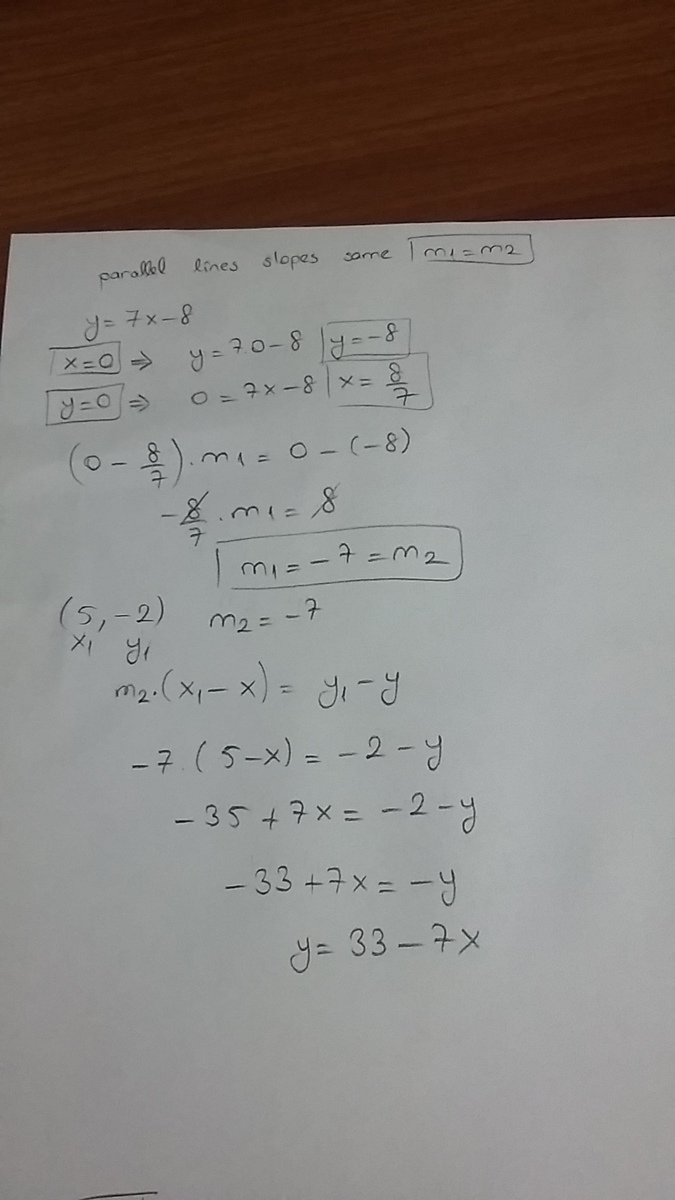 parallel lines slopes same m1 = m2
y = 7x - 8
x = 0 ⇒ y = 7.0 - 8 y = -8
y = 0 ⇒ 0 = 7x - 8 x = 8/7
(0 - 8/7) . m1 = 0 - (-8)
-8/7 . m1 = 8
m1 = -7 = m2
(5, -2) m2 = -7
x1 y1
m2.(x1 - x) = y1 - y
-7.(5 - x) = -2 - y
-35 + 7x = -2 - y
-33 + 7x = -y
y = 33 - 7x